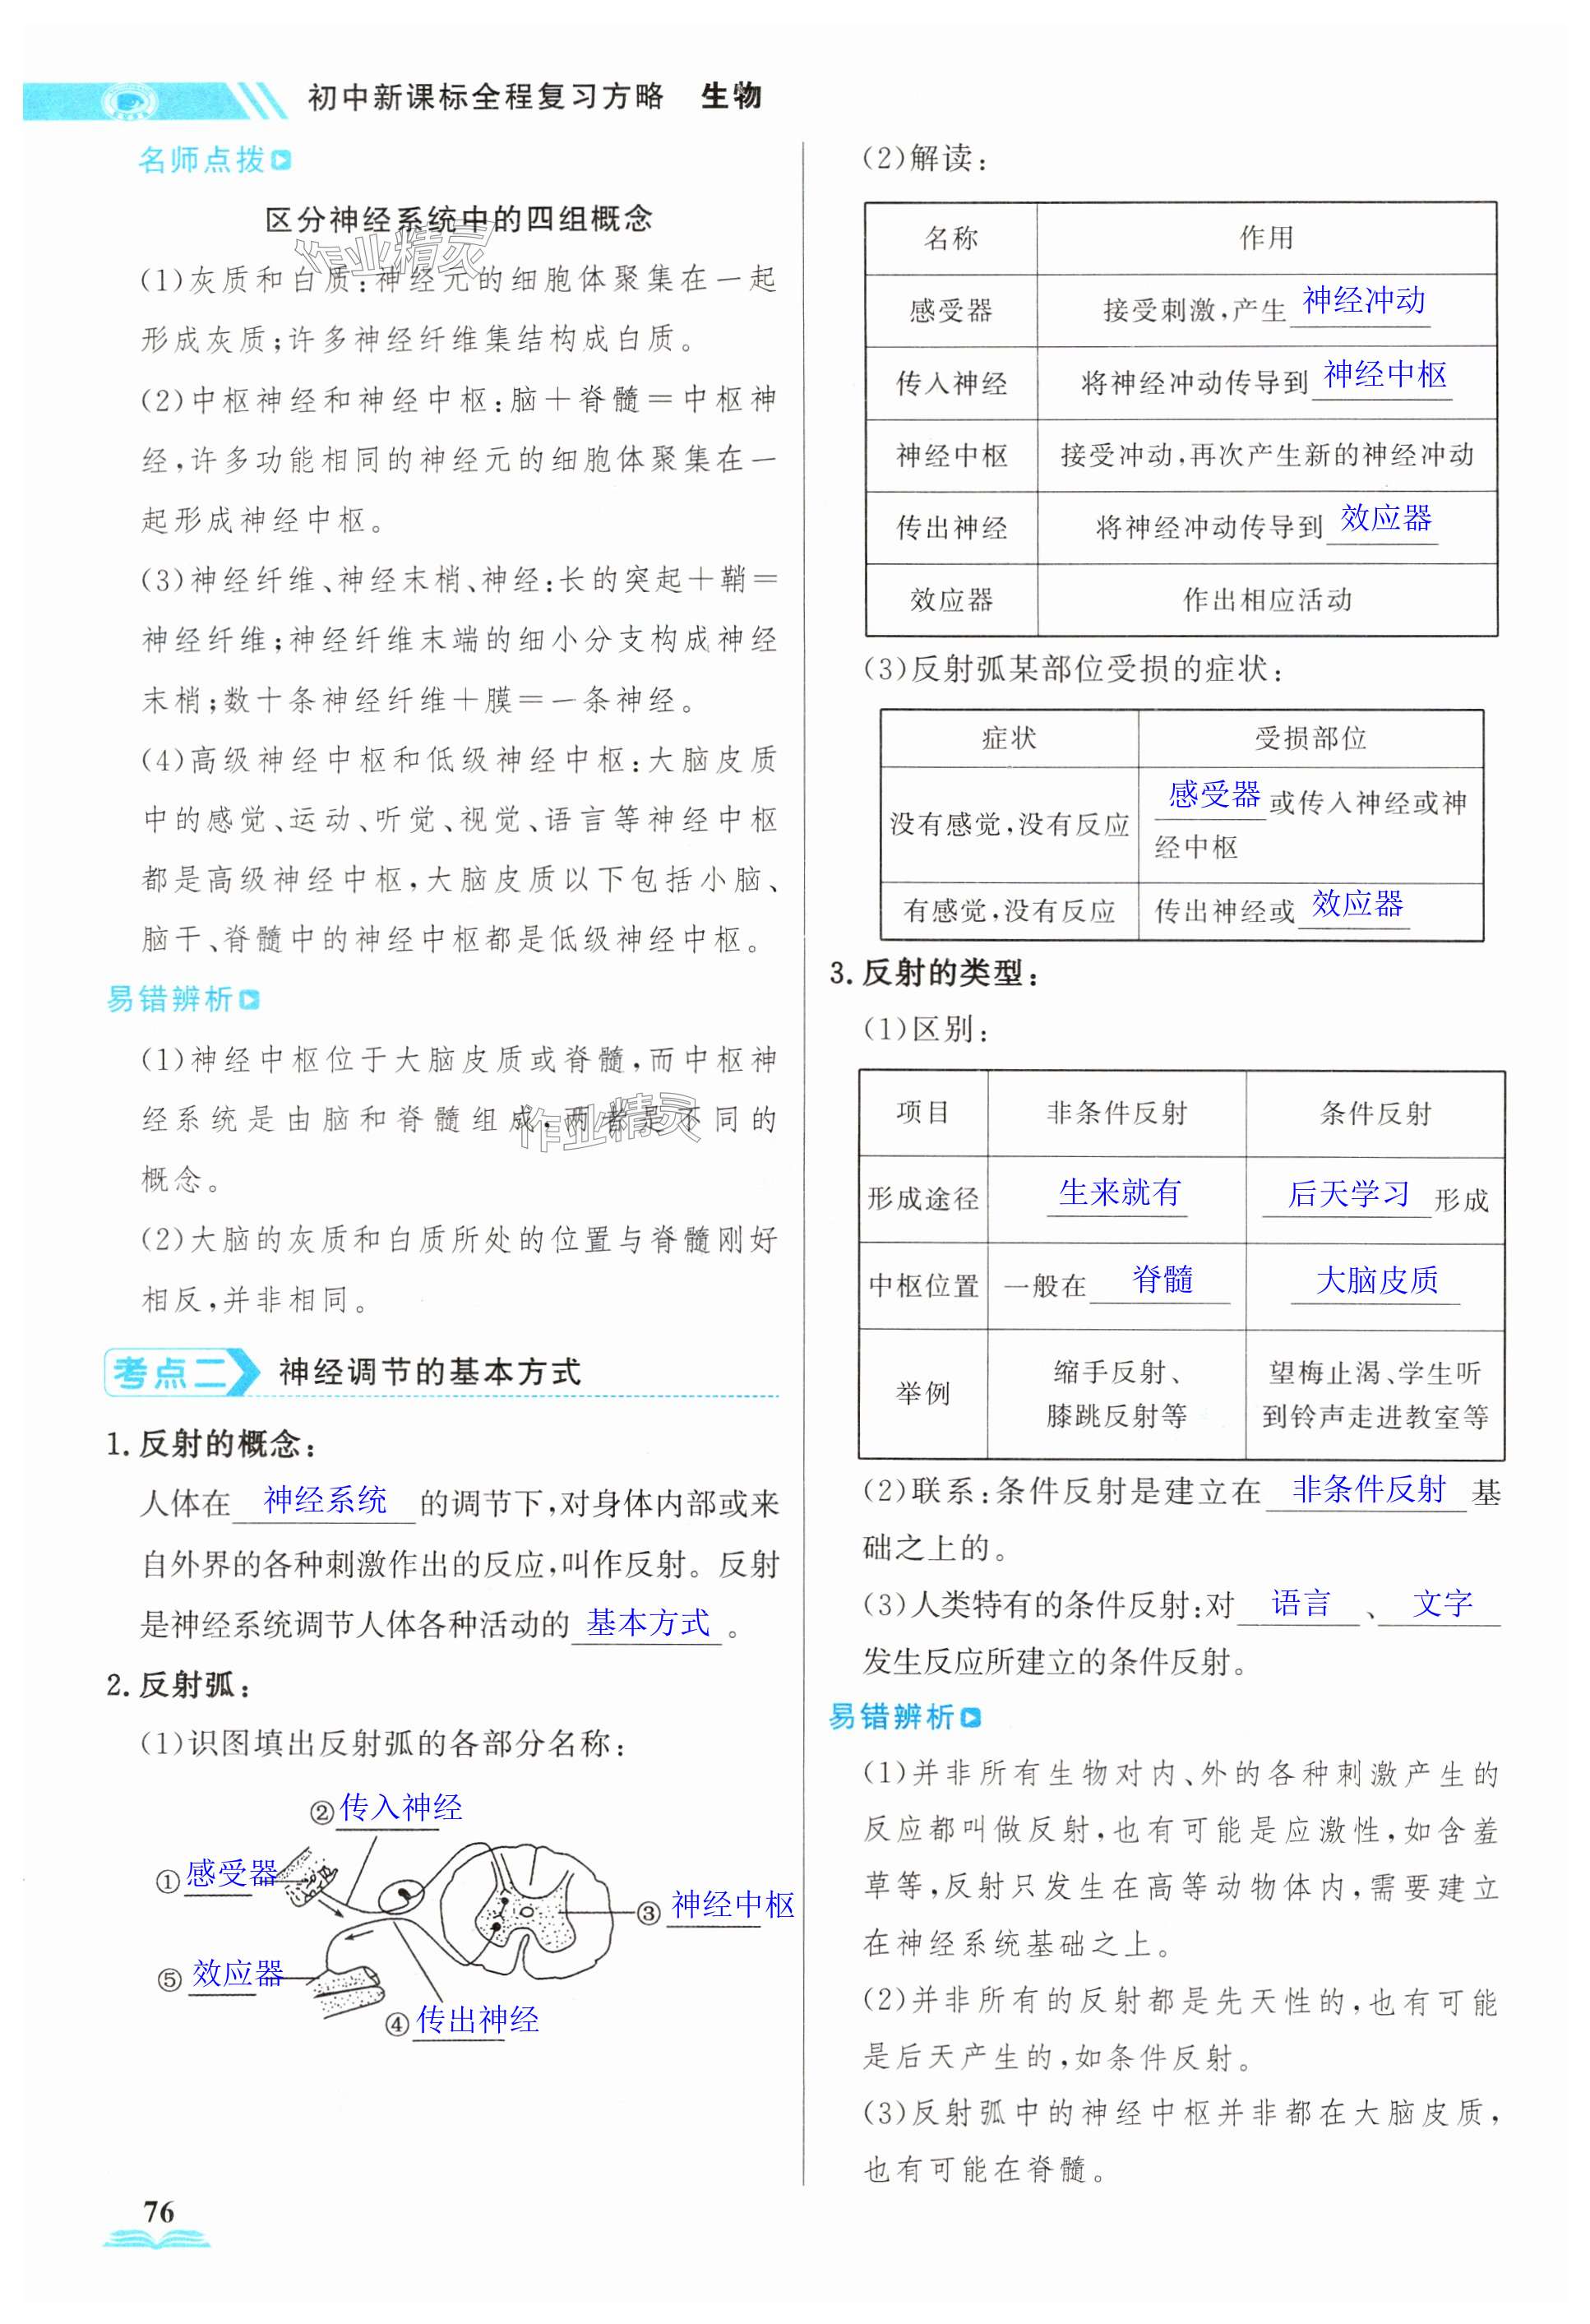 初中新课标全程复习方略 生物
名师点拨
区分神经系统中的四组概念
作业精灵
(1)灰质和白质:神经元的细胞体聚集在一起
形成灰质;许多神经纤维集结构成白质。
(2)中枢神经和神经中枢:脑+脊髓=中枢神
经,许多功能相同的神经元的细胞体聚集在一
起形成神经中枢。
(3)神经纤维、神经末梢、神经:长的突起+鞘=
神经纤维;神经纤维末端的细小分支构成神经
末梢;数十条神经纤维+膜=一条神经。
(4)高级神经中枢和低级神经中枢:大脑皮质
中的感觉、运动、听觉、视觉、语言等神经中枢
都是高级神经中枢,大脑皮质以下包括小脑、
脑干、脊髓中的神经中枢都是低级神经中枢。
易错辨析
(1)神经中枢位于大脑皮质或脊髓,而中枢神
经系统是由脑和脊髓组成,两者是不同的
作业精灵
概念。
(2)大脑的灰质和白质所处的位置与脊髓刚好
相反,并非相同。
考点二 神经调节的基本方式
1. 反射的概念:
人体在 神经系统 的调节下,对身体内部或来
自外界的各种刺激作出的反应,叫作反射。反射
是神经系统调节人体各种活动的 基本方式 。
2. 反射弧:
(1)识图填出反射弧的各部分名称:
② 传入神经
① 感受器
③ 神经中枢
⑤ 效应器
④ 传出神经
76
(2)解读:
名称 作用
感受器 接受刺激,产生 神经冲动
传入神经 将神经冲动传导到 神经中枢
神经中枢 接受冲动,再次产生新的神经冲动
传出神经 将神经冲动传导到 效应器
效应器 作出相应活动
(3)反射弧某部位受损的症状:
症状 受损部位
没有感觉,没有反应 感受器 或传入神经或神
经中枢
有感觉,没有反应 传出神经或 效应器
3. 反射的类型:
(1)区别:
项目 非条件反射 条件反射
形成途径 生来就有 后天学习 形成
中枢位置 一般在 脊髓 大脑皮质
举例 缩手反射、 望梅止渴、学生听
膝跳反射等 到铃声走进教室等
(2)联系:条件反射是建立在 非条件反射 基
础之上的。
(3)人类特有的条件反射:对 语言 、 文字
发生反应所建立的条件反射。
易错辨析
(1)并非所有生物对内、外的各种刺激产生的
反应都叫做反射,也有可能是应激性,如含羞
草等,反射只发生在高等动物体内,需要建立
在神经系统基础之上。
(2)并非所有的反射都是先天性的,也有可能
是后天产生的,如条件反射。
(3)反射弧中的神经中枢并非都在大脑皮质,
也有可能在脊髓。